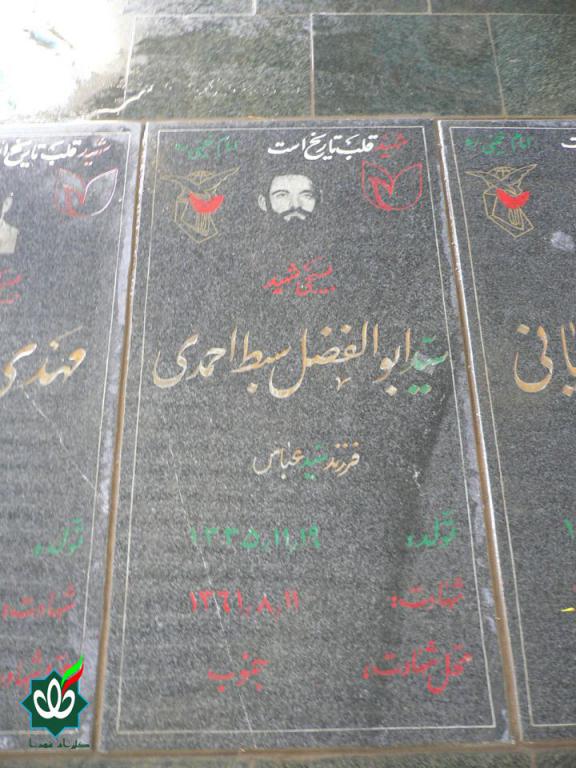 شهید قلب تاریخ است امام خمینی ره
بسیجی شهید
سید ابوالفضل سبط احمدی
فرزند سید عباس
تولد: ۱۳۳۵،۱۱،۱۹
شهادت: ۱۳۶۱،۸،۱۱
محل شهادت: جنوب
شهید قلب تاریخ
مهدی
تولد:
شهادت:
امام خمینی ره